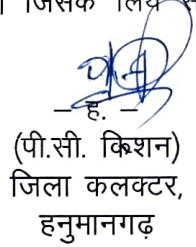 जिसके लिये
– ह. –
(पी.सी. किशन)
जिला कलक्टर,
हनुमानगढ़